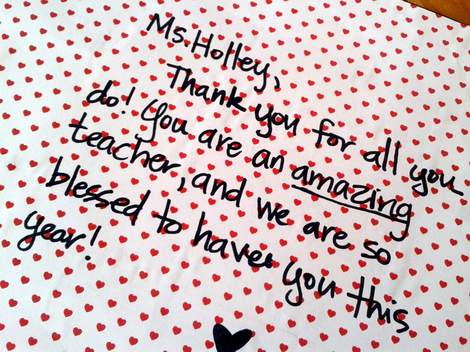 Ms. Holley,
Thank you for all you
do! You are an amazing
teacher, and we are so
blessed to have you this
year!